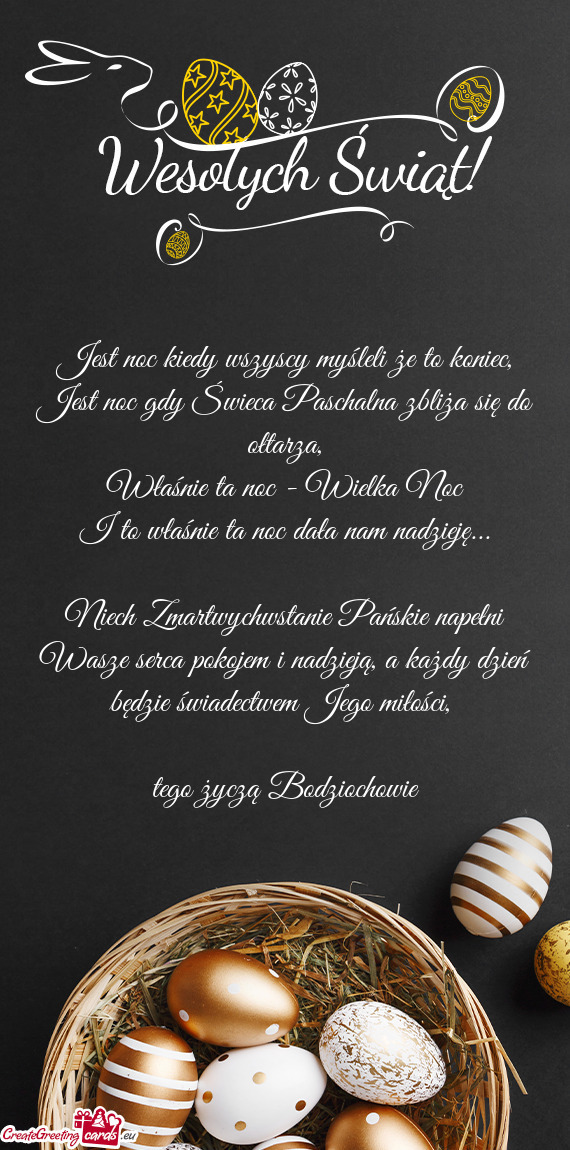 Wesołych Świąt!
Jest noc kiedy wszyscy myśleli że to koniec,
Jest noc gdy Świeca Paschalna zbliża się do
ołtarza,
Właśnie ta noc - Wielka Noc
I to właśnie ta noc dała nam nadzieję...
Niech Zmartwychwstanie Pańskie napełni
Wasze serca pokojem i nadzieją, a każdy dzień
będzie świadectwem Jego miłości,
tego życzą Bodziochowie
CreateGreeting cards .eu